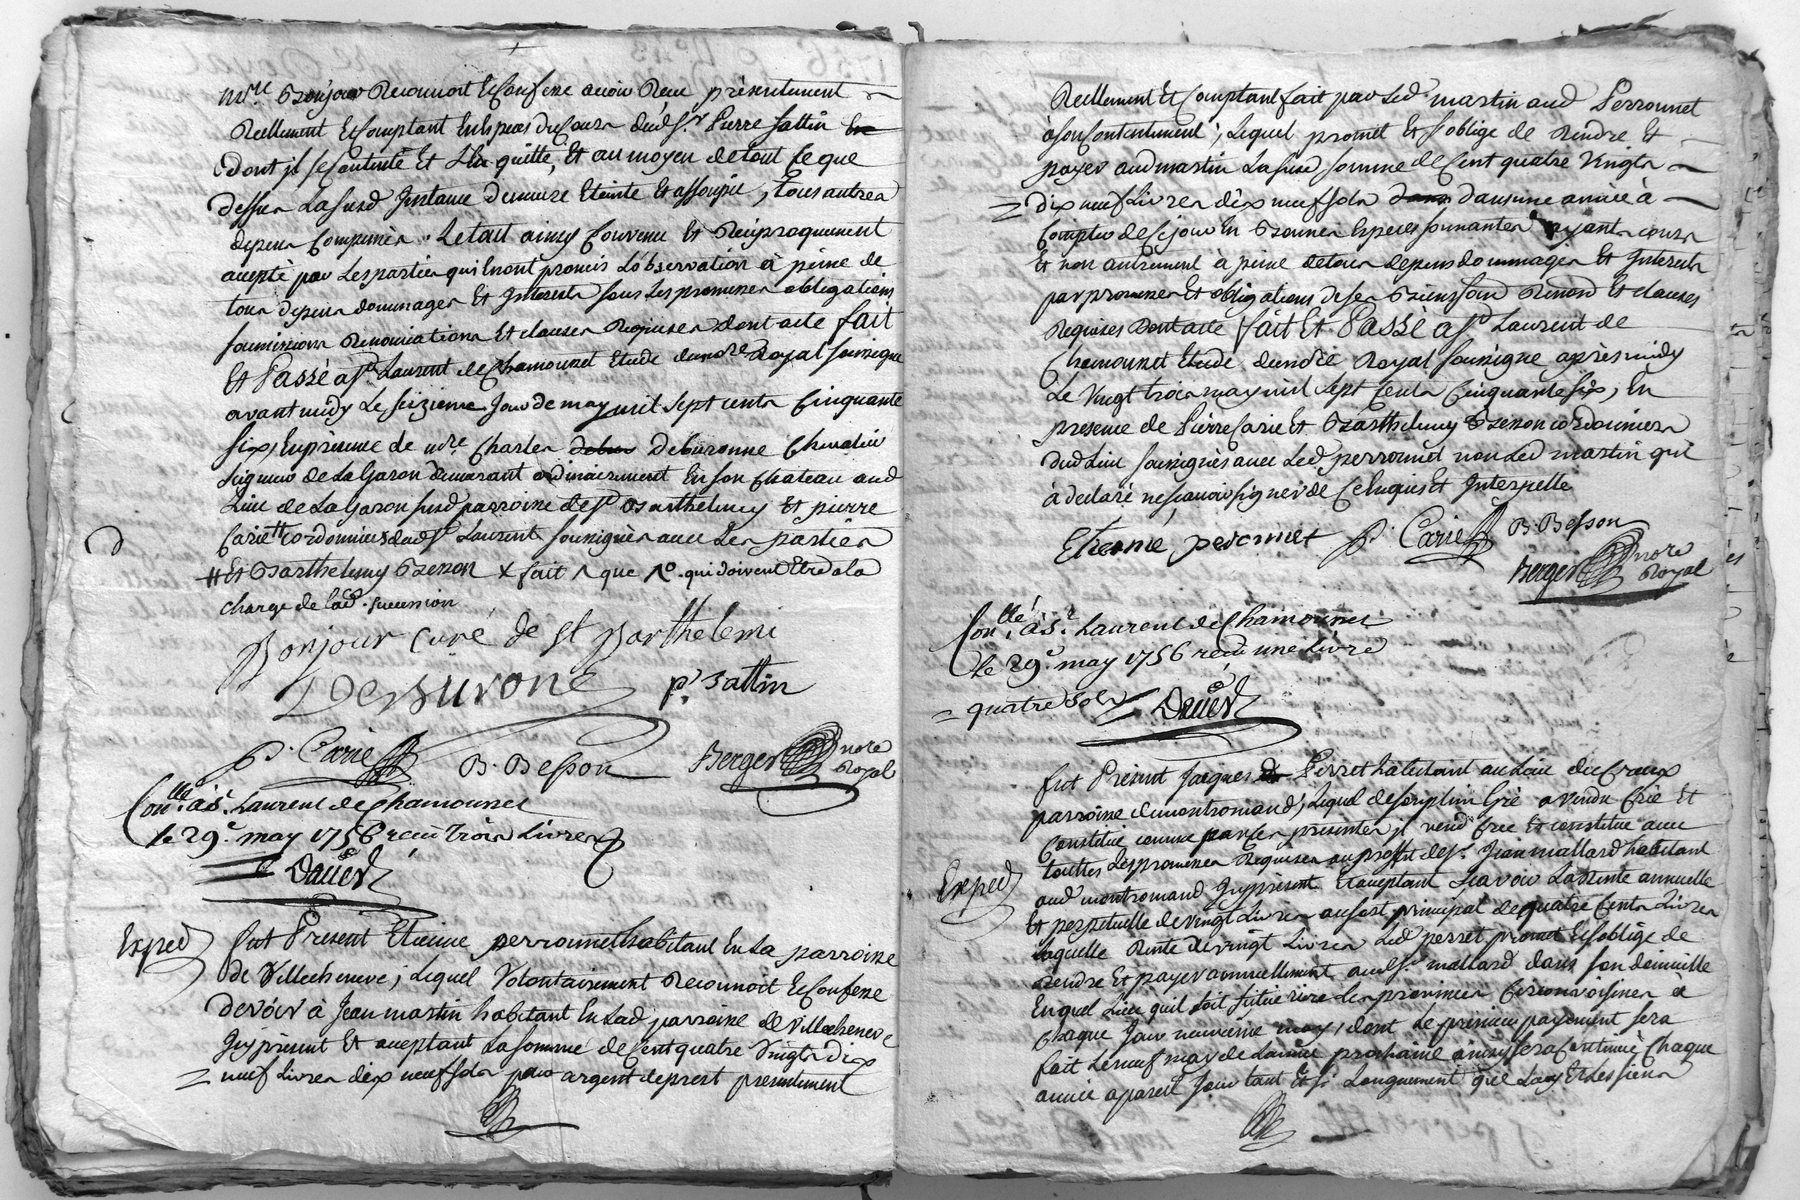 mre Bonjour Reconnoit Et Confesse avoir Receu présentement
Reellement Et Comptant En Especes du Cours dud sr Pierre fattin
dont jl se Contente Et L'en quitte, Et au moyen de tout Ce que
dessus Lasusd Jnstance demeure Eteinte Et assoupie, tous autres
depens Compensés. Letout ainsy Convenu Et Reciproquement
accepté par Lesparties qui Enont promis L'observation à peine de
tous depens dommages Et Jnterests sous Les promesses obligations
soumissions Renonciations Et clauses Requises dont acte fait
Et Passé a st Laurent de Chamousset Etude dunore Royal soussigné
avant midy Le seizieme Jour de may mil sept cents Cinquante
six, En présence de mre Charles Debaronne Chevalier
seigneur de La Garon demeurant ordinairement En son Chateau aud
Lieu de La Garon susd parroisse de st Barthelemy Et pierre
Carie # cordonnier dud st Laurent soussignés avec Les parties
# Et Barthelemy Besson x fait 1 que 10. qui doivent Etre a la
charge de lad. succession
Bonjour Curé de st Barthelemi
Debarone p. fattin
P. Carie B. Besson Berger nore Royal
Conllé à st Laurent de Chamousset
le 29e may 1756 reçu trois Livres
Daüer
Exped
fut Présent Etienne perronnet habitant En La parroisse
de Villecheneve, Lequel Volontairement Reconnoit Et Confesse
devoir à Jean martin habitant En Lad parroisse de Villecheneve
Jcy présent Et aceptant La somme de Cent quatre Vingts dix
neuf Livres dix neuf sols pour argent deprest presentement
Reellement Et Comptant fait par Led martin aud Perronnet
à son Contentement, Lequel promet Et s'oblige de Rendre Et
payer aud martin Lasusd somme de Cent quatre Vingts
dix neuf Livres dix neuf sols dans dansune année à
Compter de Ce jour En Bonnes Especes sonnantes ayant cours
Et non autrement à peine de tous depens dommages Et Jnterests
par promesses Et obligations de ses Biens soum Renon Et clauses
Requises Dont acte fait Et Passé a st Laurent de
Chamousset Etude dunore Royal soussigné après midy
Le Vingt trois may mil sept Cents Cinquante six, En
présence de Pierre Carie Et Barthelemy Besson cordonniers
dud Lieu soussignés avec Led perronnet non Led martin qui
à declaré ne sçavoir signer de Ce Enquis Et Interpellé
Etienne peronnet P. Carie B. Besson
Berger nore Royal
Conllé à st. Laurent de Chamousset
le 29e may 1756 reçu une Livre
quatre sols Daüer
Exped
fut Présent Jacques Perret habitant au Lieu du Creux
parroisse de montromand, Lequel de son plein Gré a vendu Créé Et
Constitué comme par Ces presentes jl vend Cree Et constitue avec
touttes Les promesses Requises au proffit de sr. Jean mallard habitant
aud montromand Jcy présent Et aceptant Scavoir La Rente annuelle
Et perpetuelle de vingt Livres au sort principal de quatre Cents Livres
Laquelle Rente de vingt Livres Led perret promet Et s'oblige de
Rendre Et payer annuellement aud sr. mallard dans son domicille
En quel Lieu quil soit situé Riere Les provinces Circonvoisines a
chaque Jour neuvieme may, dont Le premier payement sera
fait Le neuf may de L'année prochaine ainsy sera Continué Chaque
année a pareil Jour tant Et si Longuement que Luy Et Les siens